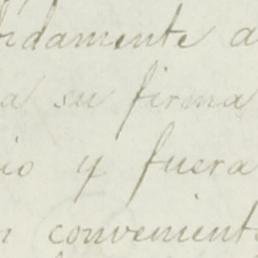 bidamente a
a su firma
io y fuera
n convenient